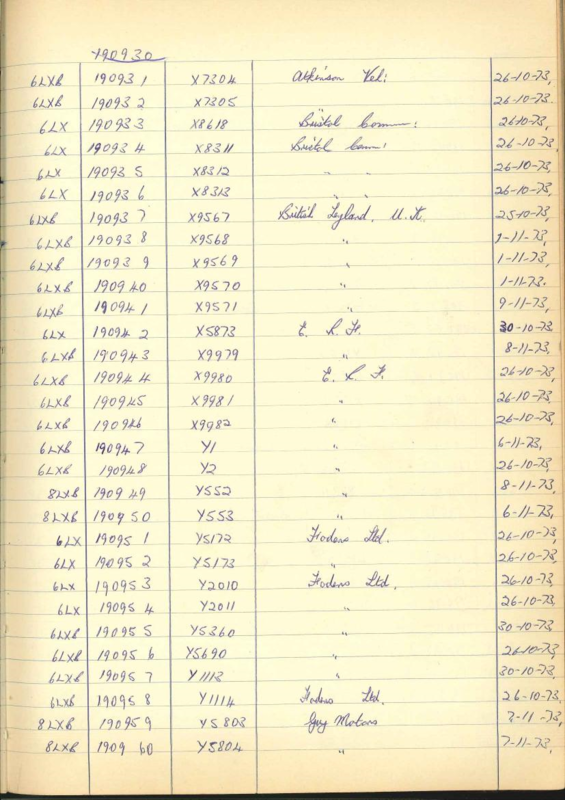 190930
6LXB 190931 X7304 Atkinson Veh: 26-10-73,
6LXB 190932 X7305 26-10-73.
6LX 190933 X8618 Bristol Comm: 26-10-73,
6LX 190934 X8311 Bristol Com! 26-10-73,
6LX 190935 X8312 " " 26-10-73,
6LX 190936 X8313 " " 26-10-73,
6LXB 190937 X9567 British Leyland. U.K. 25-10-73,
6LXB 190938 X9568 " 1-11-73,
6LXB 190939 X9569 " 1-11-73,
6LXB 190940 X9570 " 1-11-73.
6LXB 190941 X9571 " 9-11-73,
6LX 190942 X5873 E. R. F. 30-10-73
6LXB 190943 X9979 " 8-11-73,
6LXB 190944 X9980 E. R. F. 26-10-73,
6LXB 190945 X9981 " 26-10-73,
6LXB 190946 X9982 " 26-10-73,
6LXB 190947 Y1 " 6-11-73,
6LXB 190948 Y2 " 26-10-73,
8LXB 190949 Y552 " 8-11-73,
8LXB 190950 Y553 " 6-11-73,
6LX 190951 Y5172 Fodens Ltd. 26-10-73,
6LX 190952 Y5173 " 26-10-73,
6LX 190953 Y2010 Fodens Ltd. 26-10-73,
6LX 190954 Y2011 " 26-10-73,
6LXB 190955 Y5360 " 30-10-73,
6LXB 190956 Y5690 " 26-10-73,
6LXB 190957 Y1113 " 30-10-73,
6LXB 190958 Y1114 Fodens Ltd. 26-10-73,
8LXB 190959 Y5803 Guy Motors 7-11-73,
8LXB 190960 Y5804 " 7-11-73,